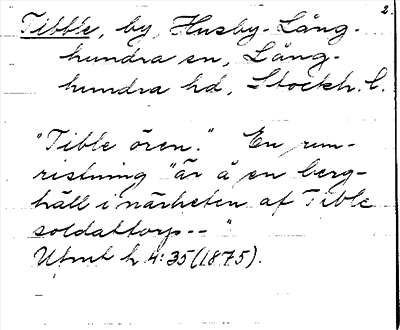 2.
Tibble, by, Husby-Lång-
hundra sn, Lång-
hundra hd, Stockh. l.
"Tible ören." En run-
ristning "är å en berg-
häll i närheten af Tible
soldattorp--"
Utmt h 4:35 (1875).